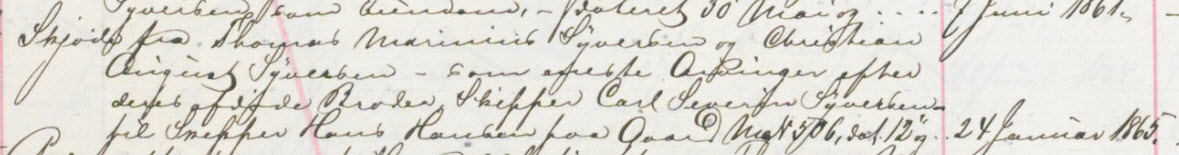 Syversen som Eiendom, – dateret 30 Mai og .... 7 Juni 1861.
Skjøde fra Thomas Marinius Syversen og Christian
August Syversen – som eneste Arvinger efter
deres afdøde Broder, Skipper Carl Severin Syversen –
til Skipper Hans Hansen paa Gaard Mat N 506, dat. 12 og .. 24 Januar 1865.